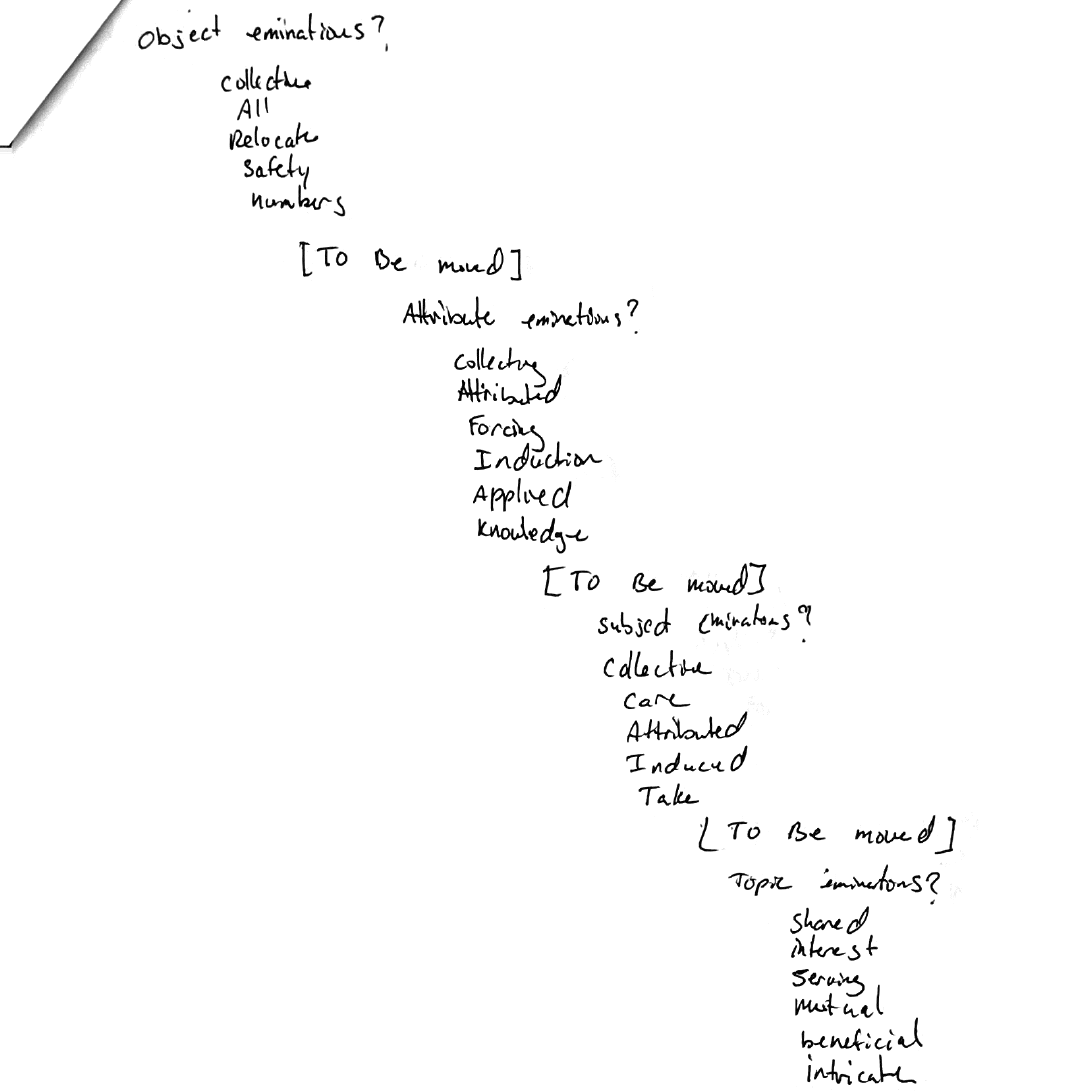 Object eminations?
Collective
All
Relocate
Safety
numbers
[To Be moved]
Attribute eminations?
Collecting
Attributed
Forcing
Induction
Applied
Knowledge
[To Be moved]
Subject eminations?
Collective
Care
Attributed
Induced
Take
[To Be moved]
Topic eminations?
Shared
interest
Serving
mutual
beneficial
intricate